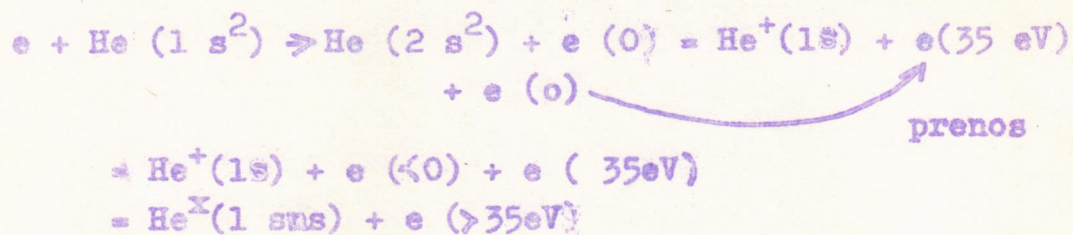 e + He (1 s²) > He (2 s²) + e (0) = He⁺(1s) + e(35 eV)
+ e (o)
prenos
= He⁺(1s) + e (<0) + e ( 35eV)
= Heˣ(1 sns) + e (>35eV)